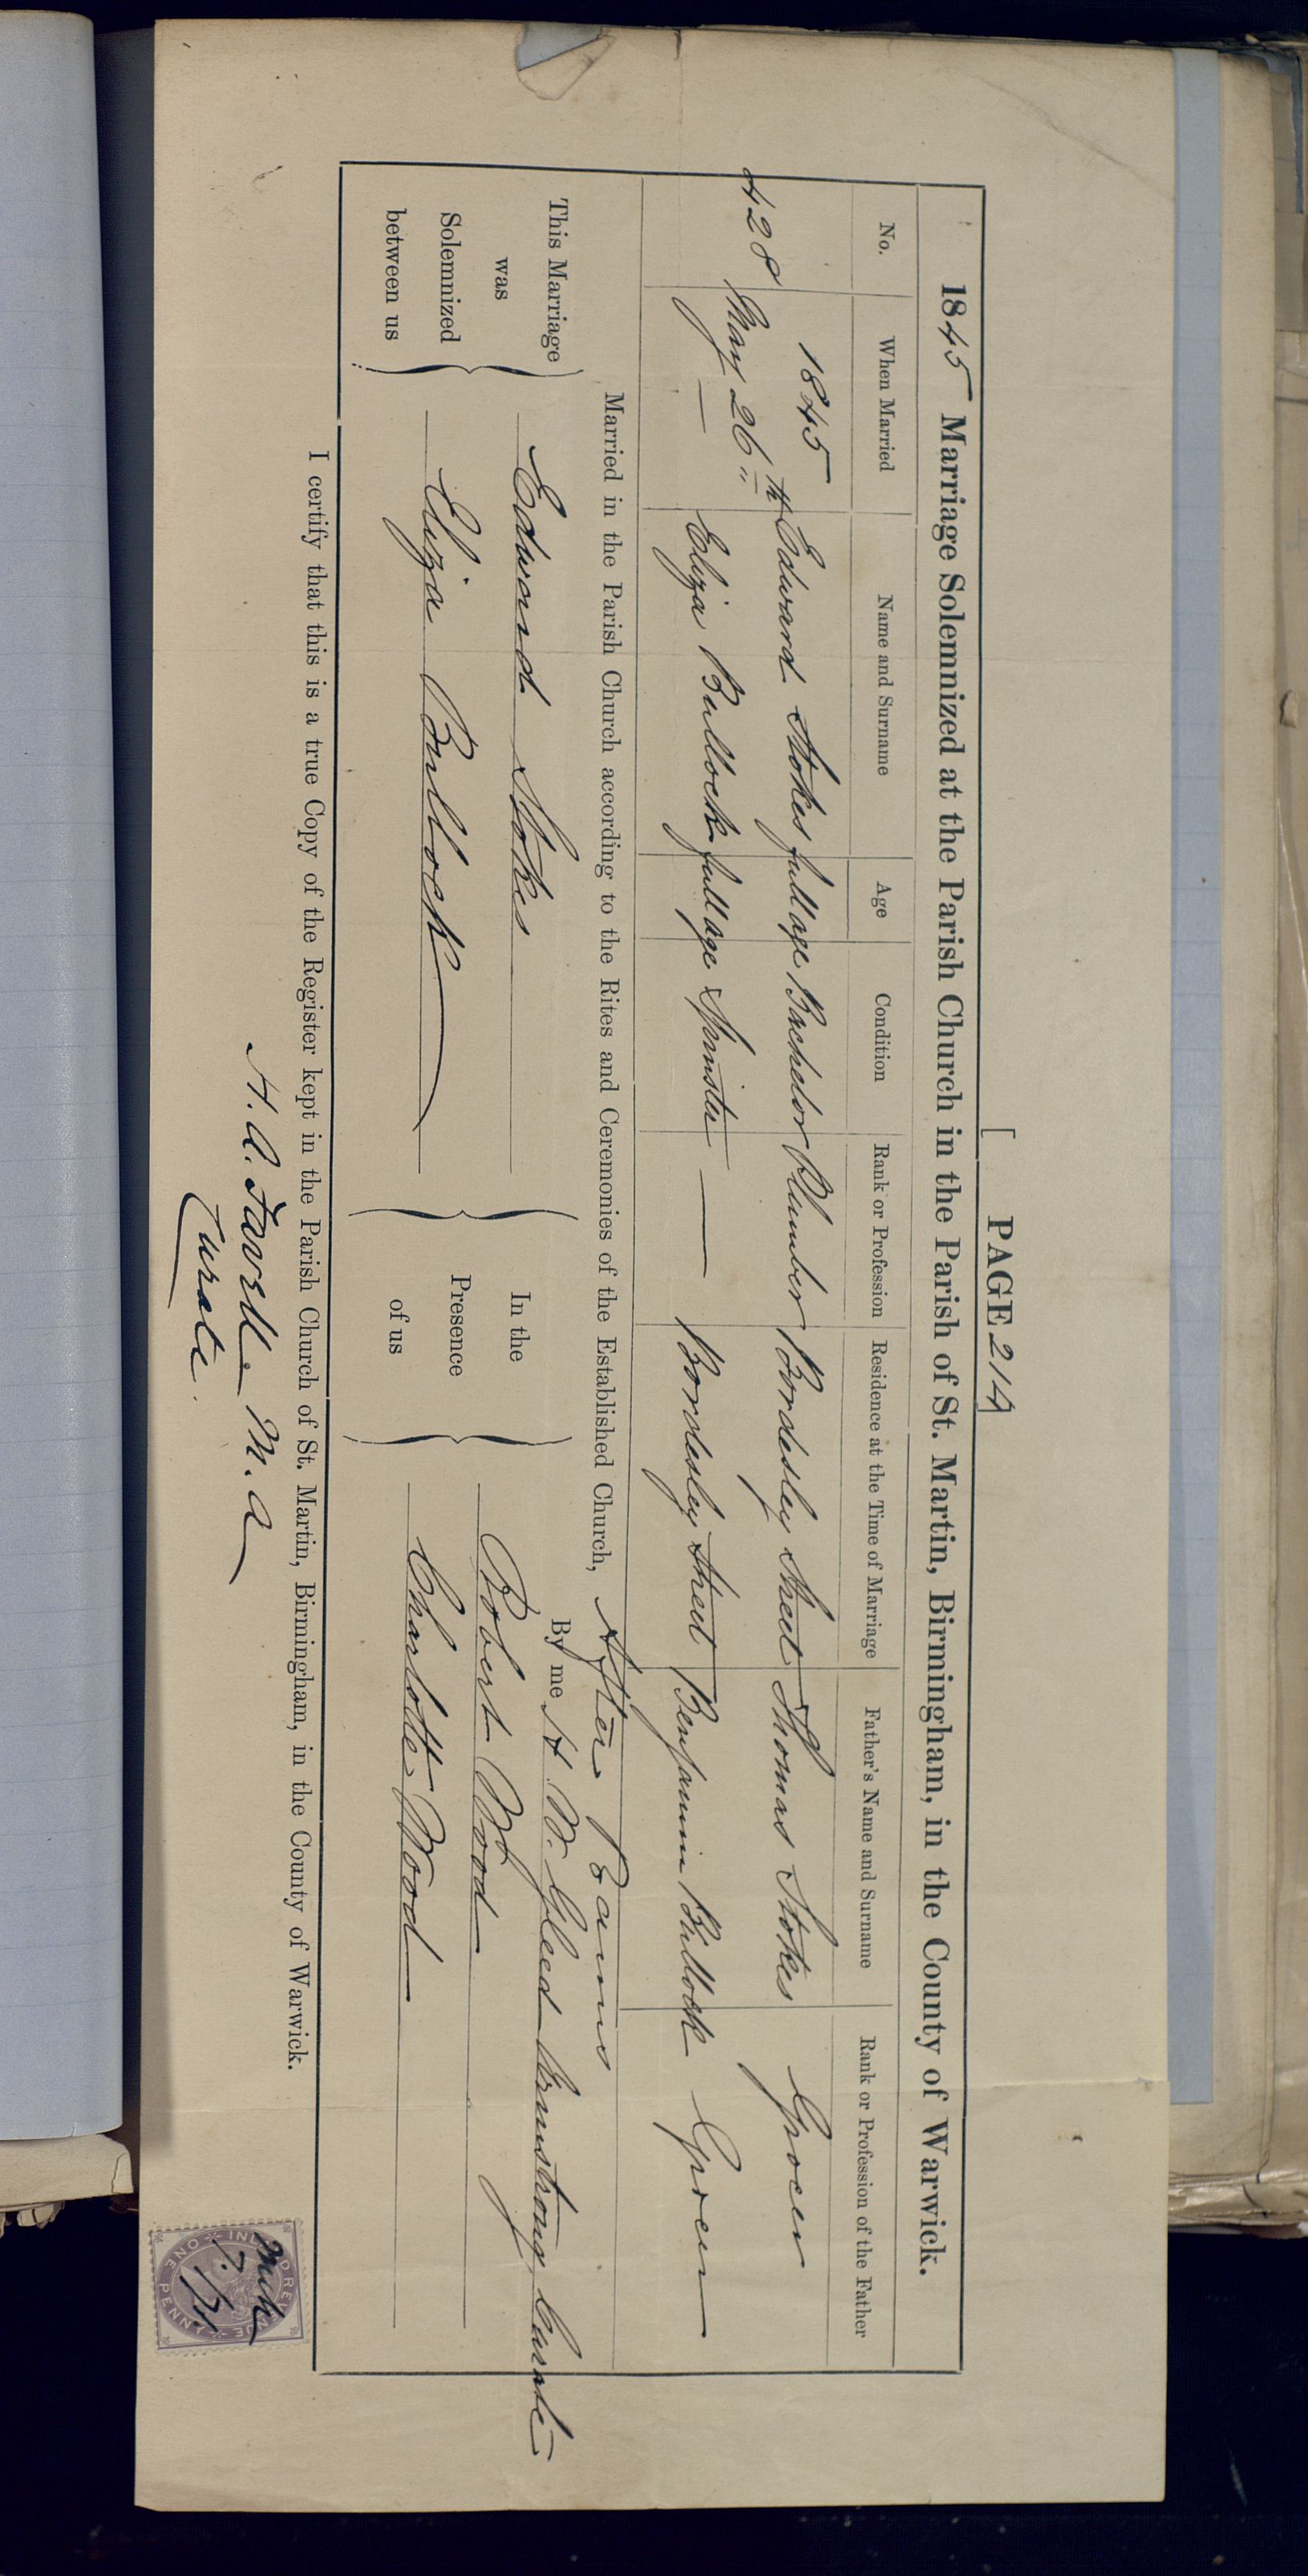 [ PAGE 214 ]
1845 Marriage Solemnized at the Parish Church in the Parish of St. Martin, Birmingham, in the County of Warwick.
No. When Married Name and Surname Age Condition Rank or Profession Residence at the Time of Marriage Father's Name and Surname Rank or Profession of the Father
428 1845 May 26th Edward Stokes full age Bachelor Plumber Bordesley Street Thomas Stokes Grocer
Eliza Bullock full age Spinster — Bordesley Street Benjamin Bullock Grocer
Married in the Parish Church according to the Rites and Ceremonies of the Established Church, After Banns
By me H. W. Gleed Armstrong, Curate
This Marriage was Solemnized between us
Edward Stokes
Eliza Bullock
In the Presence of us
Robert Wood
Charlotte Wood
I certify that this is a true Copy of the Register kept in the Parish Church of St. Martin, Birmingham, in the County of Warwick.
M. A.
Curate.
INL REVENUE
ONE PENNY